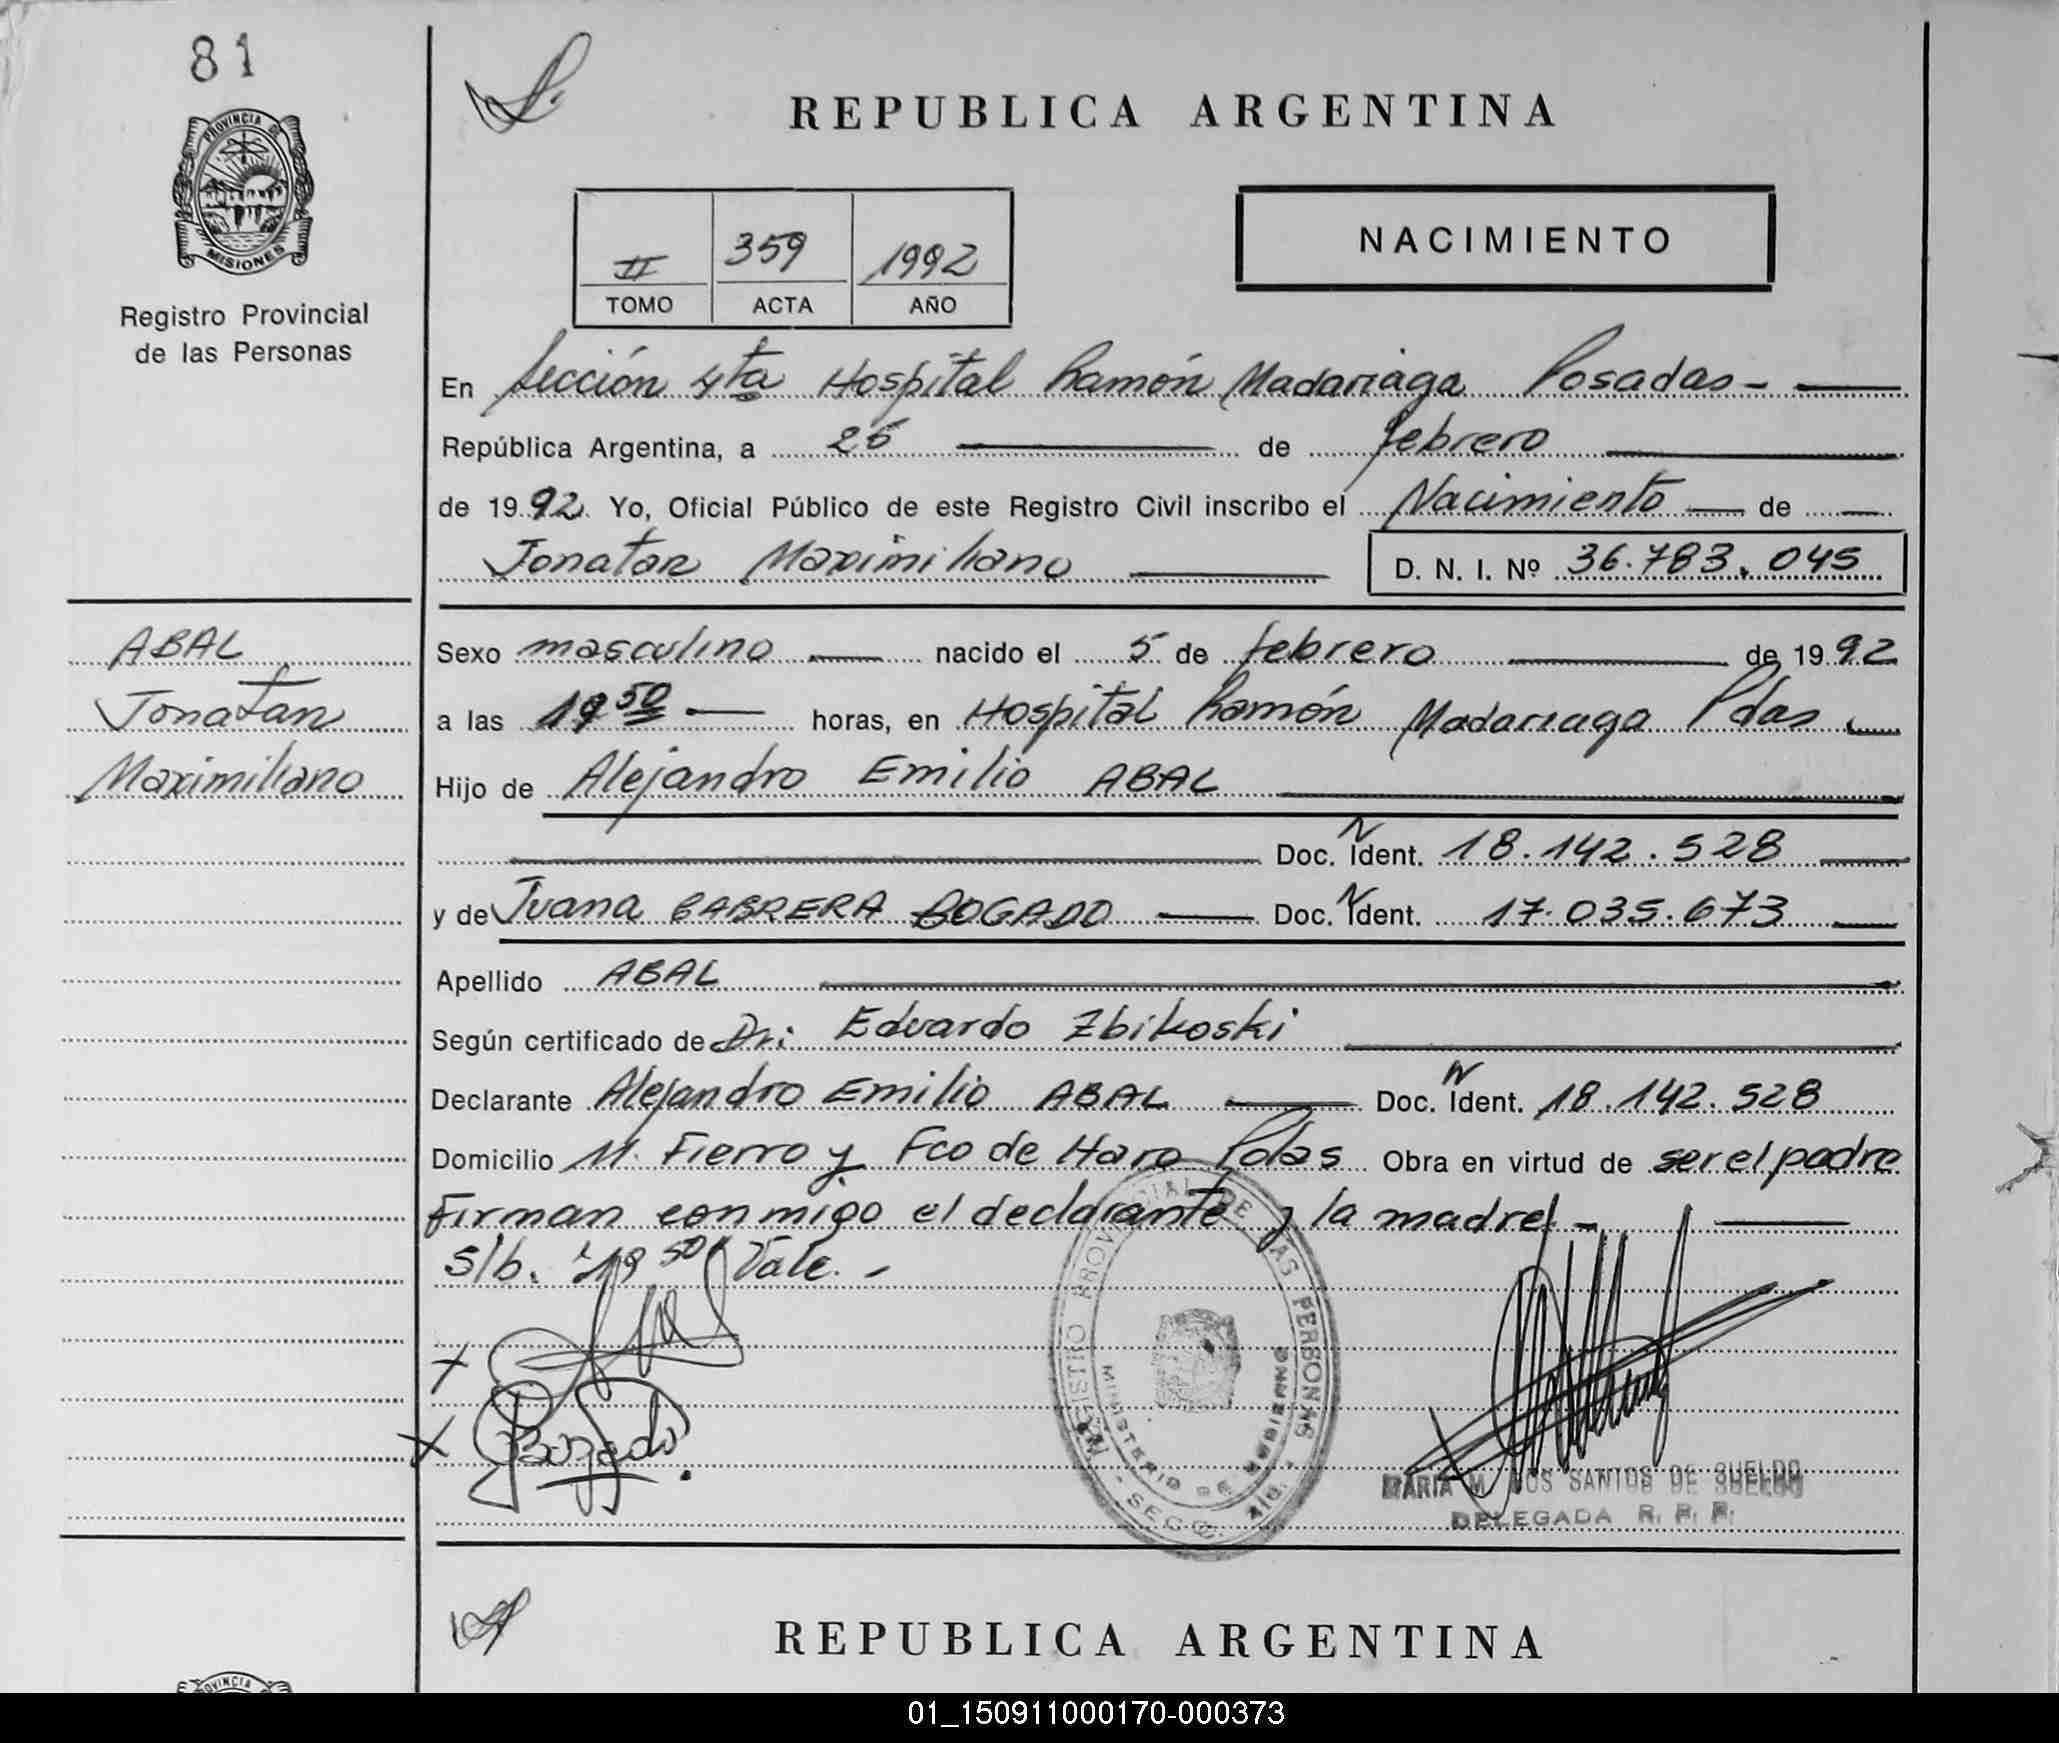 81
PROVINCIA DE
MISIONES
Registro Provincial
de las Personas
REPUBLICA ARGENTINA
II 359 1992
TOMO ACTA AÑO
NACIMIENTO
En Sección 4ta Hospital Ramón Madariaga Posadas-
República Argentina, a 26 de febrero
de 1992. Yo, Oficial Público de este Registro Civil inscribo el Nacimiento de
Jonatan Maximiliano D. N. I. Nº 36.783.045
ABAL
Jonatan
Maximiliano
Sexo masculino nacido el 5 de febrero de 1992
a las 19 50 horas, en Hospital Ramón Madariaga Pdas.
Hijo de Alejandro Emilio ABAL
Doc. N Ident. 18.142.528
y de Juana CABRERA BOGADO Doc. N Ident. 17.035.673
Apellido ABAL
Según certificado de Dr: Eduardo Zbikoski
Declarante Alejandro Emilio ABAL Doc. N Ident. 18.142.528
Domicilio M. Fierro y Fco de Haro Pdas Obra en virtud de ser el padre
Firman conmigo el declarante y la madre -
s/b. "19 50" Vale. -
REGISTRO PROVINCIAL DE LAS PERSONAS
MINISTERIO DE GOBIERNO
Bogado
MARIA M. DOS SANTOS DE SUELDO
DELEGADA R. P. P.
REPUBLICA ARGENTINA
PROVINCIA
01_150911000170-000373